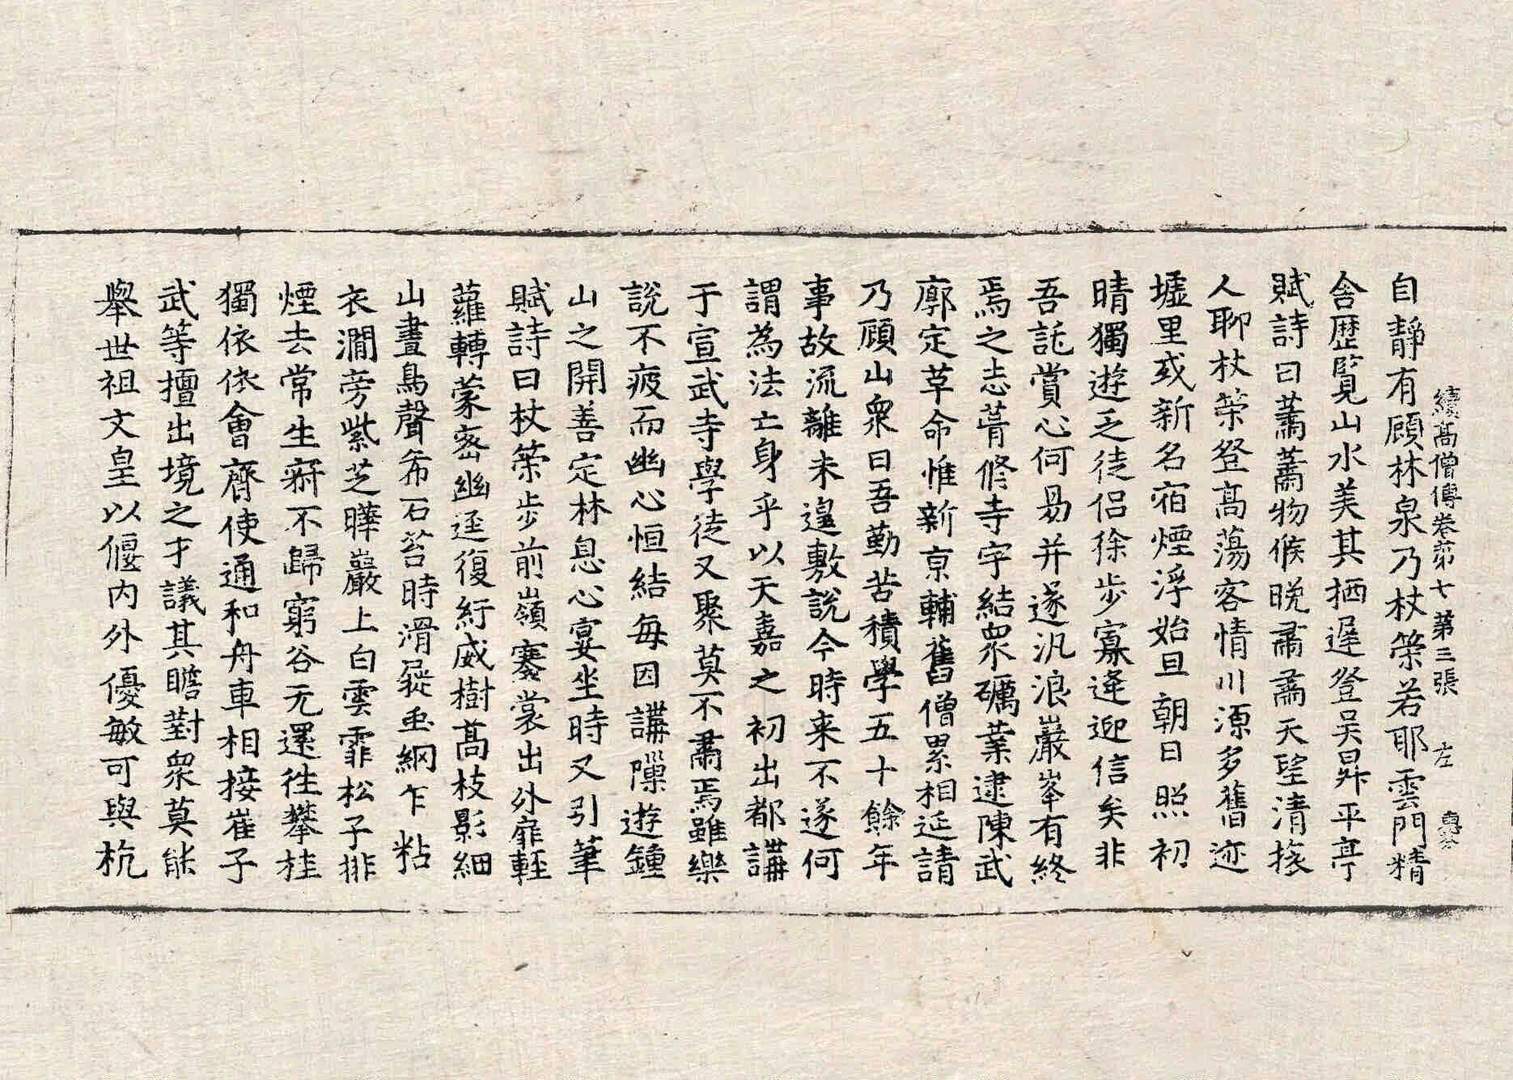 續高僧傳卷第七 第三張 左
自靜有顧林泉乃杖策若耶雲門精
舍歷覽山水美其栖遲登吳昇平亭
賦詩曰蕭蕭物候晚肅肅天望清旅
人聊杖策登高蕩客情川源多舊迹
墟里或新名宿煙浮始旦朝日照初
晴獨遊乏徒侶徐步寡逢迎信矣非
吾託賞心何易并遂汎浪巖峯有終
焉之志葺修寺宇結衆礪業逮陳武
廓定草命惟新京輔舊僧累相延請
乃顧山衆曰吾勤苦積學五十餘年
事故流離未遑敷說今時来不遂何
謂為法亡身乎以天嘉之初出都講
于宣武寺學徒又聚莫不肅焉雖樂
說不疲而幽心恒結每因講隙遊鍾
山之開善定林息心宴坐時又引筆
賦詩曰杖策步前嶺褰裳出外扉輕
蘿轉蒙密幽逕復紆威樹高枝影細
山晝鳥聲希石苔時滑屣虫網乍粘
衣澗旁紫芝曄巖上白雲霏松子排
煙去常生寂不歸窮谷无還往攀桂
獨依依會齊使通和舟車相接崔子
武等擅出境之才議其瞻對衆莫能
舉世祖文皇以偃內外優敏可與杭